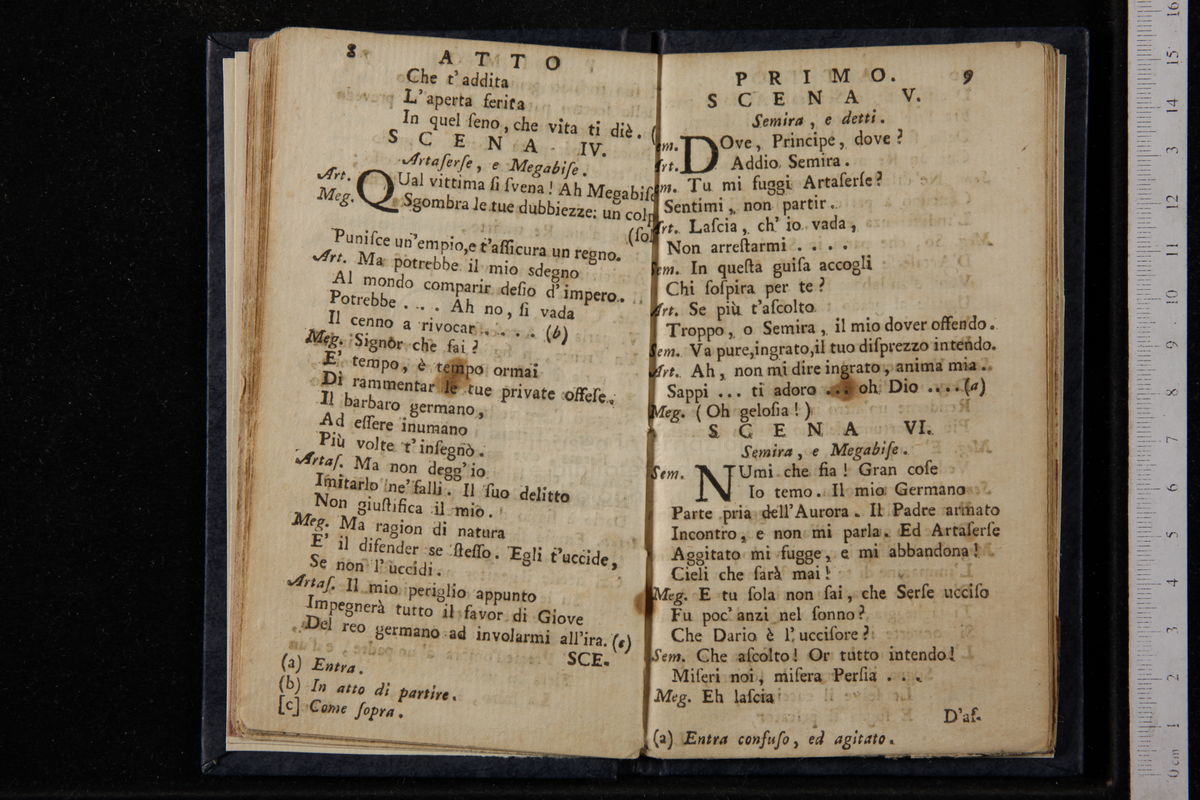 8 ATTO
Che t'addita
L'aperta ferita
In quel ſeno, che vita ti diè. (
SCENA IV.
Artaſerſe, e Megabiſe.
Art. QUal vittima ſi ſvena! Ah Megabiſe
Meg. Sgombra le tue dubbiezze: un colp
(ſol
Puniſce un'empio, e t'aſſicura un regno.
Art. Ma potrebbe il mio sdegno
Al mondo comparir deſio d'impero.
Potrebbe . . . Ah no, ſi vada
Il cenno a rivocar . . . . (b)
Meg. Signor che fai?
E' tempo, è tempo ormai
Di rammentar le tue private offeſe.
Il barbaro germano,
Ad eſſere inumano
Più volte t'inſegnò.
Artaſ. Ma non degg'io
Imitarlo ne' falli. Il ſuo delitto
Non giuſtifica il mio.
Meg. Ma ragion di natura
E' il difender se ſteſſo. Egli t'uccide,
Se non l'uccidi.
Artaſ. Il mio periglio appunto
Impegnerà tutto il favor di Giove
Del reo germano ad involarmi all'ira. (c)
SCE-
(a) Entra.
(b) In atto di partire.
[c] Come ſopra.
PRIMO. 9
SCENA V.
Semira, e detti.
em. DOve, Principe, dove?
Art. Addio Semira.
em. Tu mi fuggi Artaſerſe?
Sentimi, non partir.
Art. Laſcia, ch'io vada,
Non arreſtarmi . . . .
Sem. In queſta guiſa accogli
Chi ſoſpira per te?
Art. Se più t'aſcolto
Troppo, o Semira, il mio dover offendo.
Sem. Va pure, ingrato, il tuo diſprezzo intendo.
Art. Ah, non mi dire ingrato, anima mia.
Sappi ... ti adoro ... oh Dio .... (a)
Meg. (Oh geloſia!)
SCENA VI.
Semira, e Megabiſe.
Sem. NUmi che fia! Gran coſe
Io temo. Il mio Germano
Parte pria dell'Aurora. Il Padre armato
Incontro, e non mi parla. Ed Artaſerſe
Aggitato mi fugge, e mi abbandona!
Cieli che farà mai!
Meg. E tu ſola non ſai, che Serſe ucciſo
Fu poc'anzi nel ſonno?
Che Dario è l'ucciſore?
Sem. Che aſcolto! Or tutto intendo!
Miſeri noi, miſera Perſia . . .
Meg. Eh laſcia
D'aſ-
(a) Entra confuſo, ed agitato.
0 cm 1 2 3 4 5 6 7 8 9 10 11 12 13 14 15 16